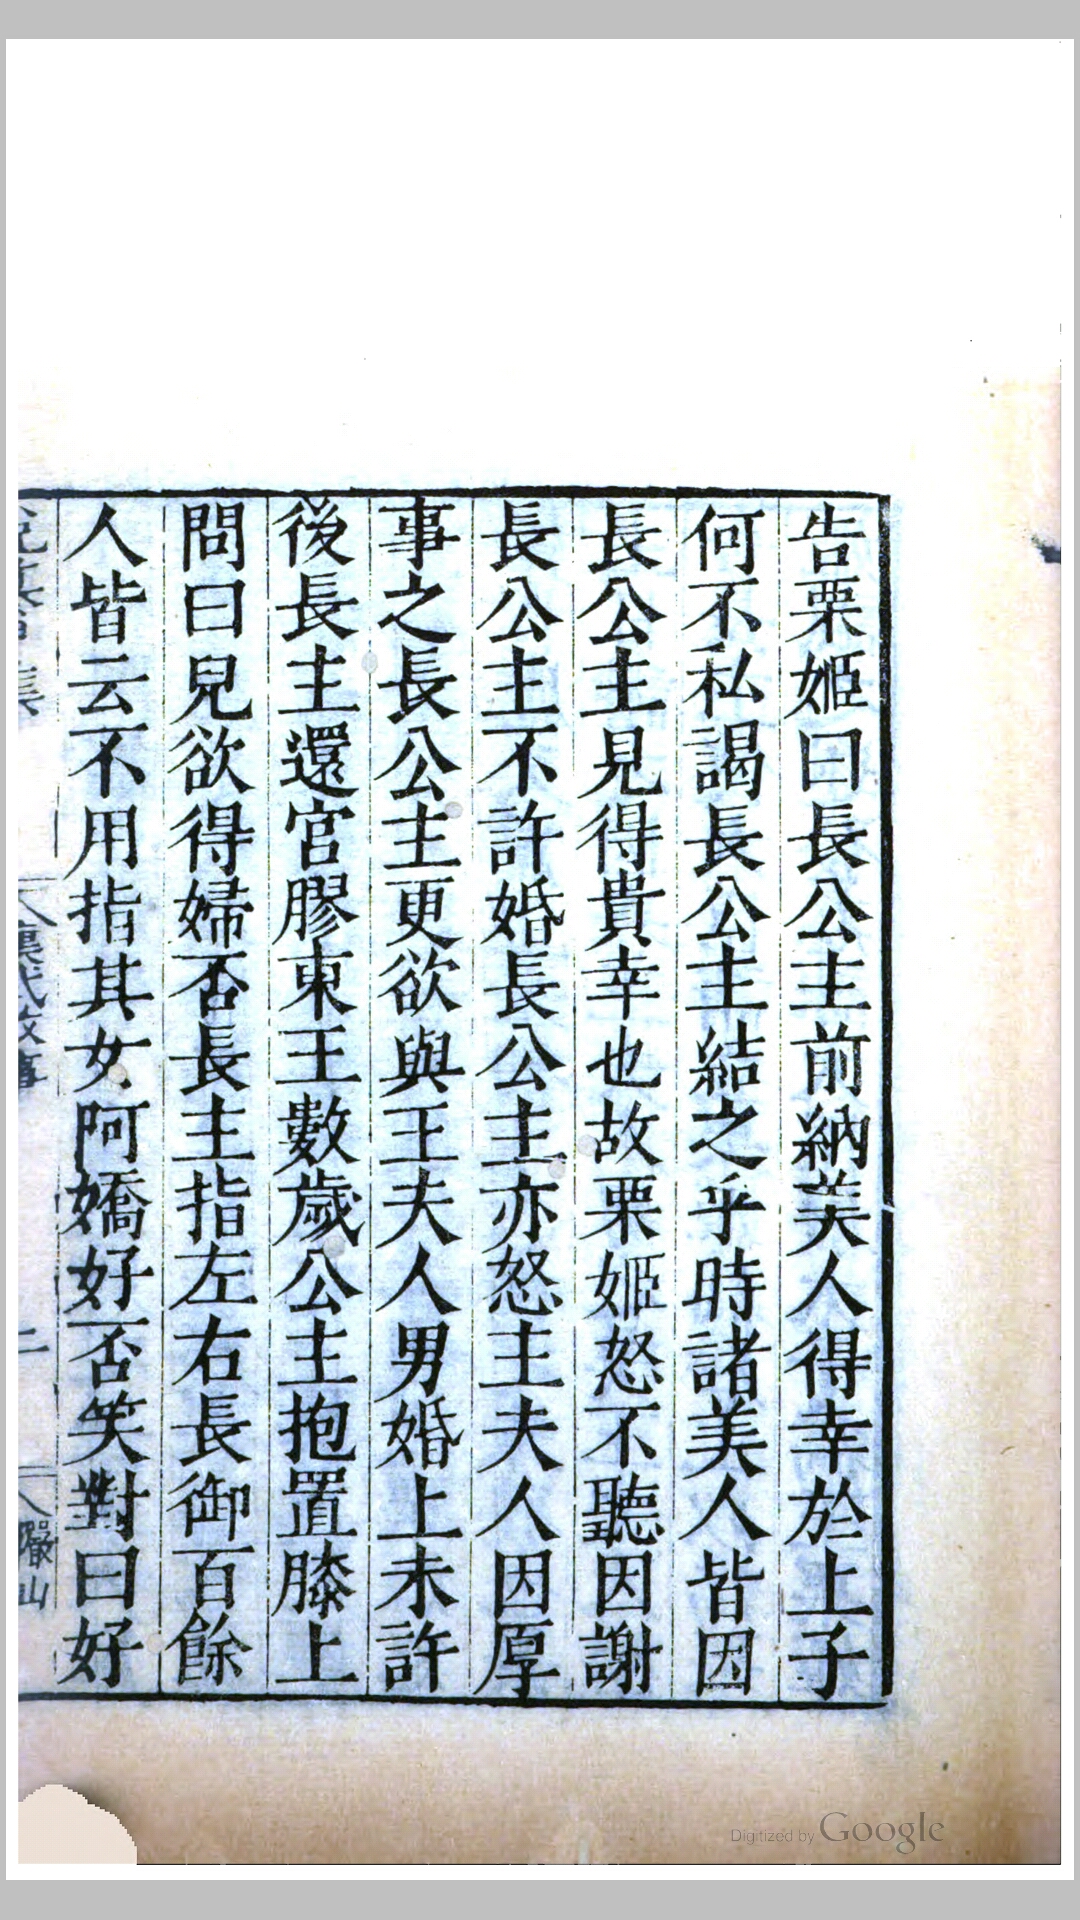 告栗姬曰長公主前納美人得幸於上子
何不私謁長公主結之乎時諸美人皆因
長公主見得貴幸也故栗姬怒不聽因謝
長公主不許婚長公主亦怒主夫人因厚
事之長公主更欲與王夫人男婚上未許
後長主還宮膠東王數歲公主抱置膝上
問曰兒欲得婦否長主指左右長御百餘
人皆云不用指其女阿嬌好否笑對曰好
二
Digitized by Google